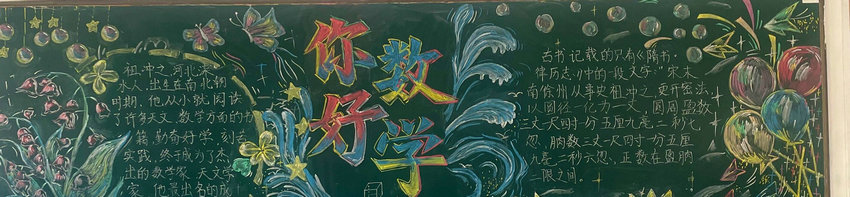 祖冲之,河北涞
水人,出生在南北朝
时期,他从小就阅读
了许多天文、数学方面的书
籍,勤奋好学,刻苦
实践,终于成为了杰
出的数学家、天文学
家。他最出名的成
你好
数学
古书记载的只有《隋书·
律历志》中的一段文字:“宋末
南徐州从事史祖冲之更开密法
以圆径一亿为一丈,圆周盈数
三丈一尺四寸一分五厘九毫二秒七
忽,朒数三丈一尺四寸一分五厘
九毫二秒六忽,正数在盈朒
二限之间。